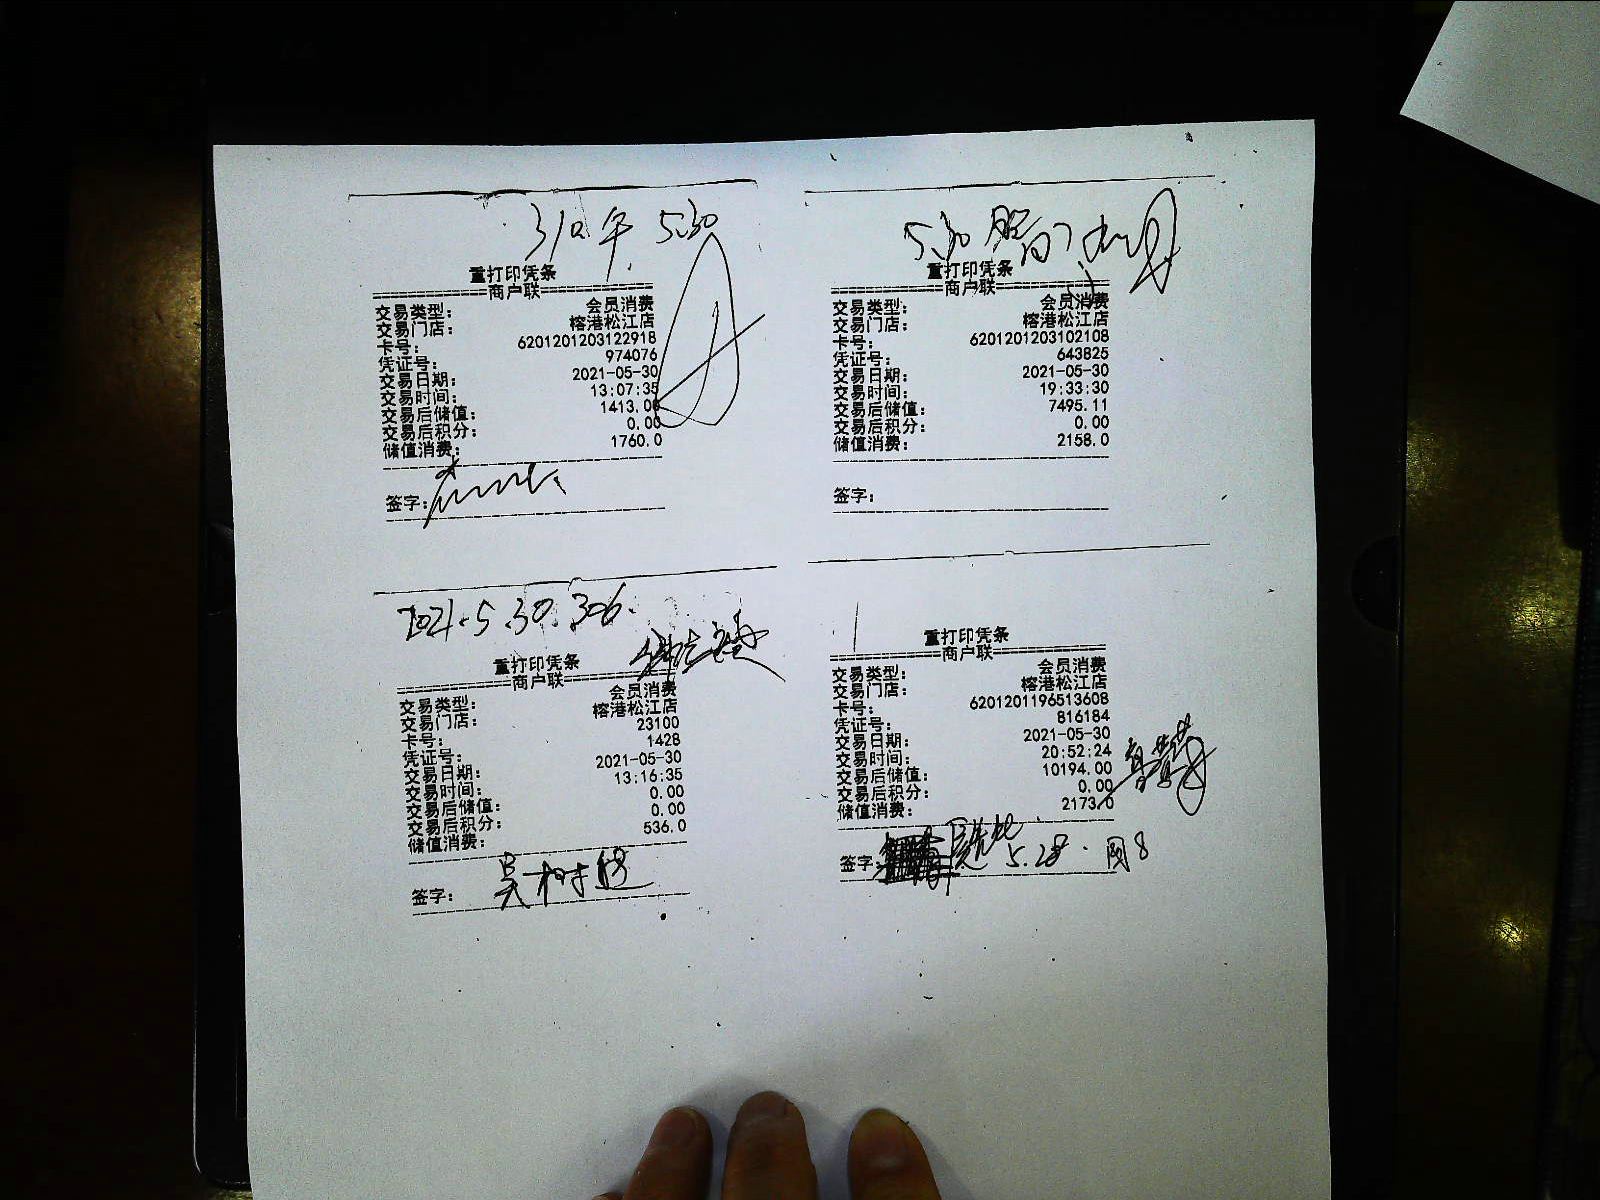 310午 5.30
重打印凭条
商户联
交易类型: 会员消费
交易门店: 榕港松江店
卡号: 6201201203122918
凭证号: 974076
交易日期: 2021-05-30
交易时间: 13:07:35
交易后储值: 1413.00
交易后积分: 0.00
储值消费: 1760.0
签字:
5.30
重打印凭条
商户联
交易类型: 会员消费
交易门店: 榕港松江店
卡号: 6201201203102108
凭证号: 643825
交易日期: 2021-05-30
交易时间: 19:33:30
交易后储值: 7495.11
交易后积分: 0.00
储值消费: 2158.0
签字:
2021.5.30.306.
重打印凭条
商户联
交易类型: 会员消费
交易门店: 榕港松江店
卡号: 23100
凭证号: 1428
交易日期: 2021-05-30
交易时间: 13:16:35
交易后储值: 0.00
交易后积分: 0.00
储值消费: 536.0
签字:
重打印凭条
商户联
交易类型: 会员消费
交易门店: 榕港松江店
卡号: 6201201196513608
凭证号: 816184
交易日期: 2021-05-30
交易时间: 20:52:24
交易后储值: 10194.00
交易后积分: 0.00
储值消费: 2173.0
签字: 5.28